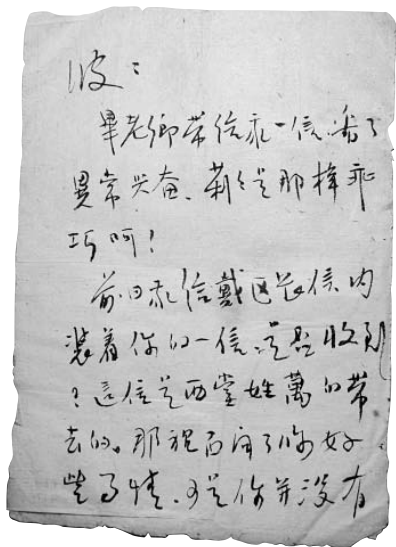 波：
畢老鄉带给我一信，看了
異常兴奋、莉〻是那樣乖
巧呵！
前日我给戴区长信内
装着你的一信，是否收到
？這信是西堂姓萬的带
去的。那裡面问了你好
些事情，可是你并没有